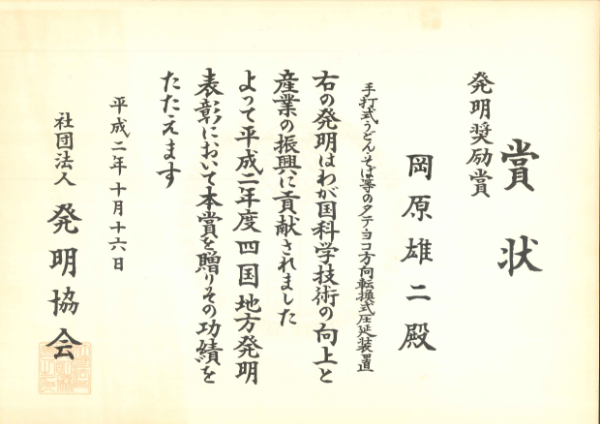 賞状
発明奨励賞
岡原雄二殿
手打式うどん・そば等のタテ・ヨコ方向転換式圧延装置
右の発明はわが国科学技術の向上と
産業の振興に貢献されました
よって平成二年度四国地方発明
表彰において本賞を贈りその功績を
たたえます
平成二年十月十六日
社団法人 発明協会